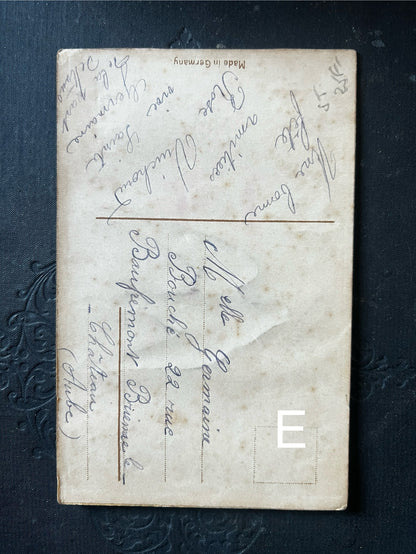 Made in Germany.
Une bonne
fête
amitiés
Rose
Vinchon
vive
Sainte
Germaine
de la part
Melle Germaine
Bouché 22 rue
Beaufremont Brienne le
- Château
(Aube)
E